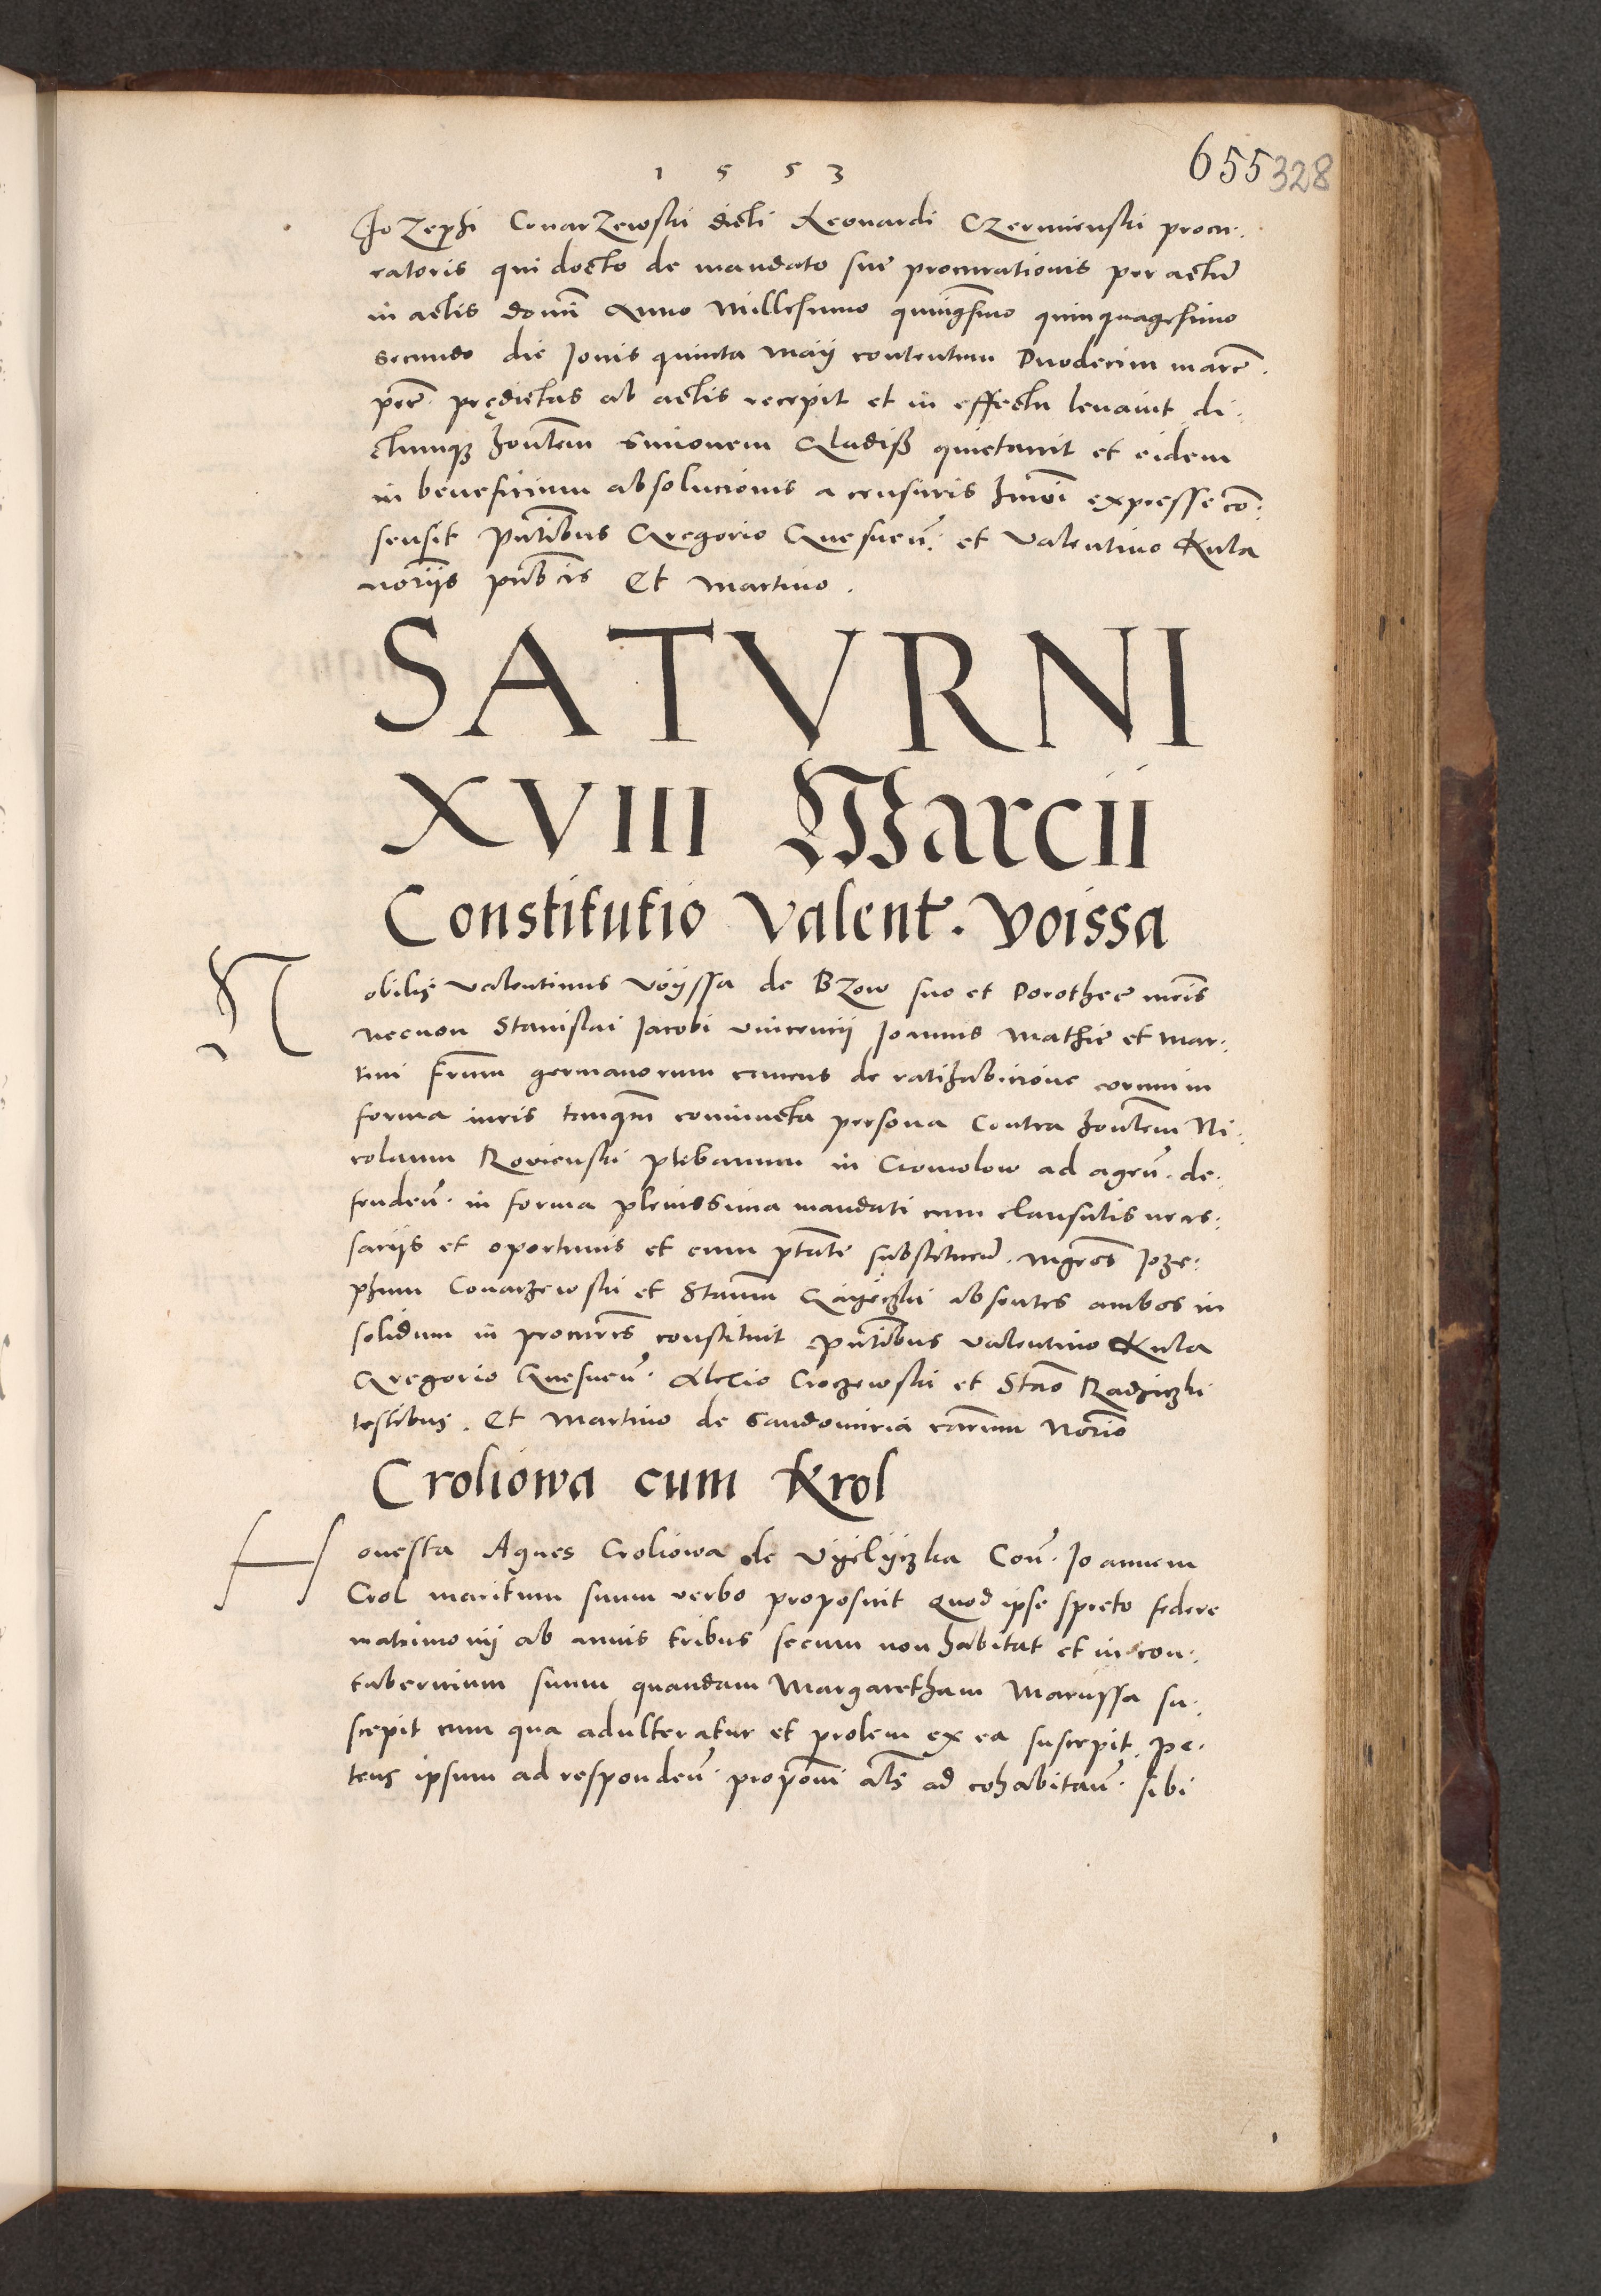 1 5 5 3
655 328
JoZephi ConarZewski dicti Leonardi CZermienski procu-
ratoris qui docto de mandato sue procurationis per actũ
in actis domĩ Anno Millesimo quingẽsimo quinquagesimo
secundo die Jovis quinta Maij contentum Duodecim marc̃.
pec̃. prędictas ab actis recepit et in effectu levavit di-
ctumqȝ hontem̃ Simonem Gladiß quietavit et eidem
in beneficium absolucionis a censuris hmõi expresse cõ-
sensit Pñtibus Gregorio Gnesneñ. et Valentino Kula
noriis publicis Et Martino.
SATVRNI
XVIII Marcii
Constitutio Valent. Voissa
Nobilis Valentinus Voyssa de BZow suo et Dorothee mr̃is
necnon Stanislai Jacobi Vincencii Joannis Mathie et Mar-
tini fr̃um germanorum cavens de ratihabicione eorum in
forma iuris tanqm̃ coniuncta persona Contra hontem̃ Ni-
colaum Rovienski plebanum in Cromolow ad ageñ. de-
fendeñ. in forma plenissima mandati cum clausulis neces-
sariis et oportunis et cum ptãte substitueñ. mgrõs Joze-
phum Conarzewski et Stañm Gayeczki absentes ambos in
solidum in procurẽs constituit Pñtibus Valentino Kula
Gregorio Gnesneñ. Alexio Croczewski et Stão Radziczki
testibus. Et Martino de Sandomiria cãrum Norio
Croliowa cum Krol
Honesta Agnes Croliowa de Vyelyczka Coñ. Joannem
Crol maritum suum verbo proposuit quod ipse spreto federe
matrimonij ab annis tribus secum non habitat et in con-
tubernium suum quandam Margaretham Marussa su-
scepit cum qua adulteratur et prolem ex ea suscepit. Pe-
tens ipsum ad respondeñ. propõni al̃s ad cohabitañ. sibi